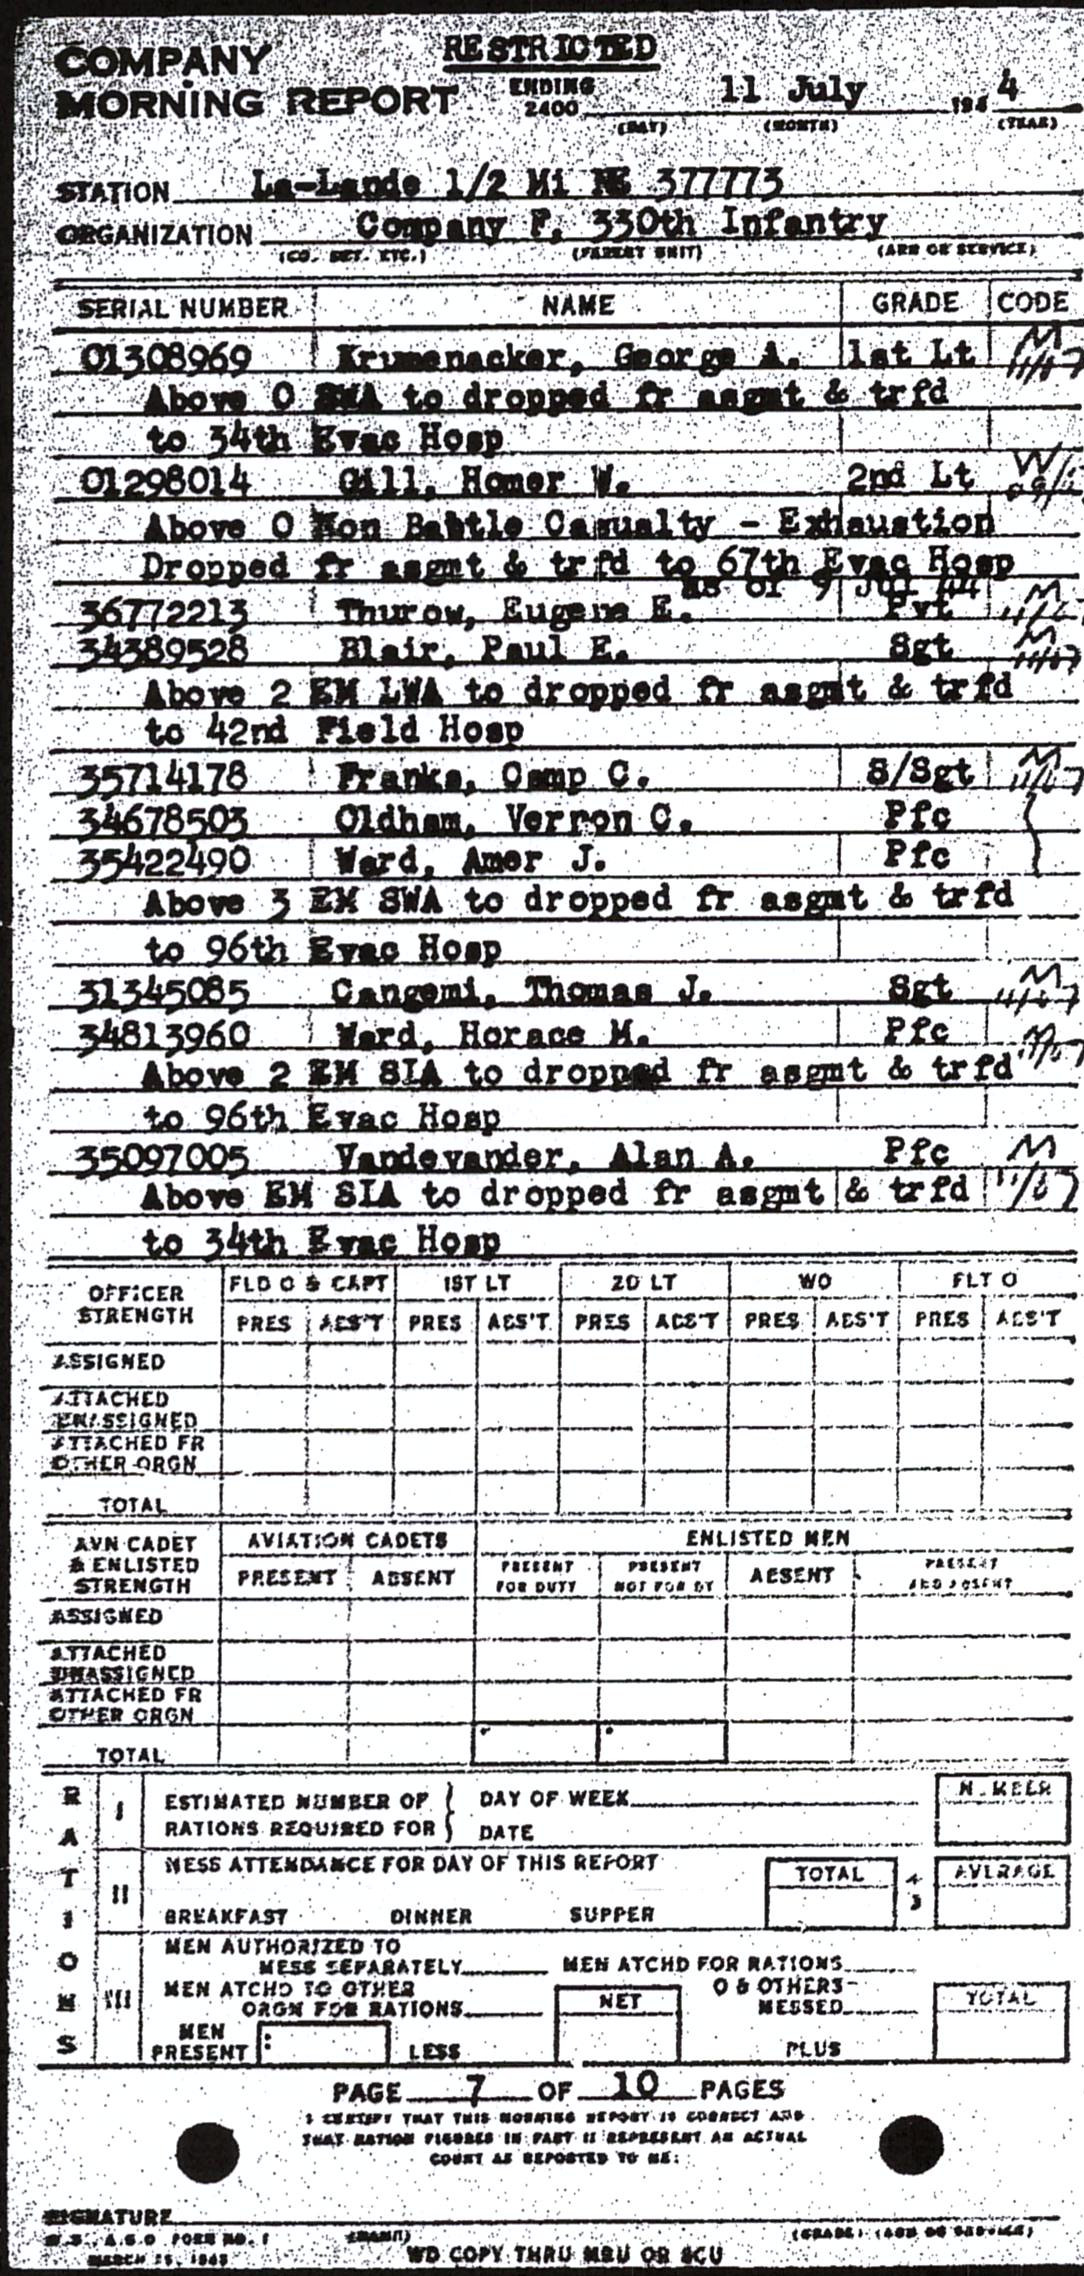 COMPANY
MORNING REPORT
RESTRICTED
ENDING
2400 11 July 194 4
(DAY) (MONTH) (YEAR)
STATION La-Lande 1/2 Mi NE 377773
ORGANIZATION Company F, 330th Infantry
(CO. DET. ETC.) (PARENT UNIT) (ARM OR SERVICE)
SERIAL NUMBER NAME GRADE CODE
01308969 Krumenacker, George A. 1st Lt M
Above O SWA to dropped fr asgmt & trfd
to 34th Evac Hosp
01298014 Gill, Homer W. 2nd Lt
Above O Non Battle Casualty - Exhaustion
Dropped fr asgmt & trfd to 67th Evac Hosp
as of 9 Jul 44
36772213 Thurow, Eugene E. Pvt M
34389528 Blair, Paul E. Sgt M
Above 2 EM LWA to dropped fr asgmt & trfd
to 42nd Field Hosp
35714178 Franks, Camp C. S/Sgt M
34678503 Oldham, Verron C. Pfc
35422490 Ward, Amer J. Pfc
Above 3 EM SWA to dropped fr asgmt & trfd
to 96th Evac Hosp
31345085 Cangemi, Thomas J. Sgt M
34813960 Ward, Horace M. Pfc M
Above 2 EM SIA to dropped fr asgmt & trfd
to 96th Evac Hosp
35097005 Vandevander, Alan A. Pfc M
Above EM SIA to dropped fr asgmt & trfd
to 34th Evac Hosp
OFFICER STRENGTH FLD O & CAPT 1ST LT 2D LT WO FLT O
PRES ABS'T PRES ABS'T PRES ABS'T PRES ABS'T PRES ABS'T
ASSIGNED
ATTACHED
UNASSIGNED
ATTACHED FR
OTHER ORGN
TOTAL
AVN CADET & ENLISTED STRENGTH AVIATION CADETS ENLISTED MEN
PRESENT ABSENT PRESENT FOR DUTY PRESENT NOT FOR DY ABSENT PRESENT AND ABSENT
ASSIGNED
ATTACHED
UNASSIGNED
ATTACHED FR
OTHER ORGN
TOTAL
RATIONS
I ESTIMATED NUMBER OF DAY OF WEEK NUMBER
RATIONS REQUIRED FOR DATE
II MESS ATTENDANCE FOR DAY OF THIS REPORT TOTAL ÷ 3 AVERAGE
BREAKFAST DINNER SUPPER
III MEN AUTHORIZED TO
MESS SEPARATELY MEN ATCHD FOR RATIONS
MEN ATCHD TO OTHER
ORGN FOR RATIONS NET O & OTHERS
MESSED TOTAL
MEN
PRESENT LESS PLUS
PAGE 7 OF 10 PAGES
I CERTIFY THAT THIS MORNING REPORT IS CORRECT AND
THAT RATION FIGURES IN PART II REPRESENT AN ACTUAL
COUNT AS REPORTED TO ME:
SIGNATURE
(NAME) (GRADE) (ARM OR SERVICE)
W.D., A.G.O FORM NO. 1
MARCH 15, 1943
WD COPY THRU MRU OR SCU